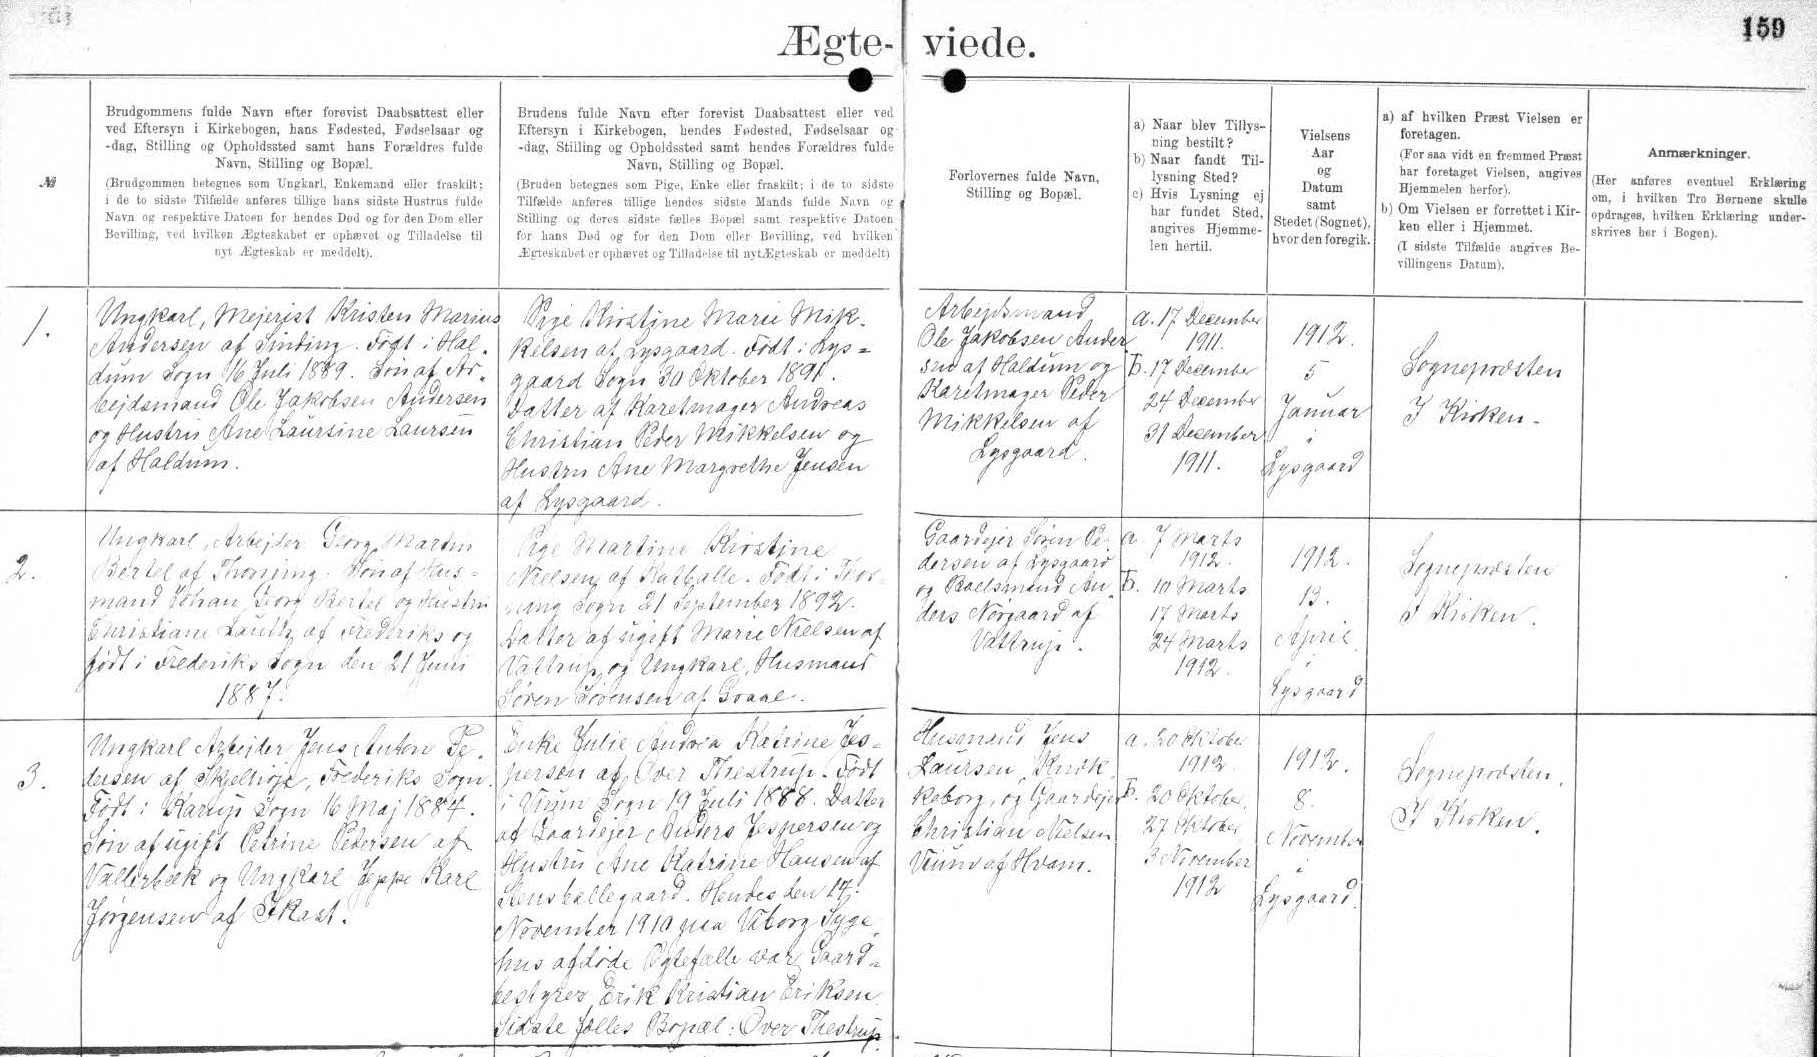 Ægte-viede.
159
№
Brudgommens fulde Navn efter forevist Daabsattest eller
ved Eftersyn i Kirkebogen, hans Fødested, Fødselsaar og
-dag, Stilling og Opholdssted samt hans Forældres fulde
Navn, Stilling og Bopæl.
(Brudgommen betegnes som Ungkarl, Enkemand eller fraskilt;
i de to sidste Tilfælde anføres tillige hans sidste Hustrus fulde
Navn og respektive Datoen for hendes Død og for den Dom eller
Bevilling, ved hvilken Ægteskabet er ophævet og Tilladelse til
nyt Ægteskab er meddelt).
Brudens fulde Navn efter forevist Daabsattest eller ved
Eftersyn i Kirkebogen, hendes Fødested, Fødselsaar og
-dag, Stilling og Opholdssted samt hendes Forældres fulde
Navn, Stilling og Bopæl.
(Bruden betegnes som Pige, Enke eller fraskilt; i de to sidste
Tilfælde anføres tillige hendes sidste Mands fulde Navn og
Stilling og deres sidste fælles Bopæl samt respektive Datoen
for hans Død og for den Dom eller Bevilling, ved hvilken
Ægteskabet er ophævet og Tilladelse til nyt Ægteskab er meddelt)
Forlovernes fulde Navn,
Stilling og Bopæl.
a) Naar blev Tillys-
ning bestilt?
b) Naar fandt Til-
lysning Sted?
c) Hvis Lysning ej
har fundet Sted,
angives Hjemme-
len hertil.
Vielsens
Aar
og
Datum
samt
Stedet (Sognet),
hvor den foregik.
a) af hvilken Præst Vielsen er
foretagen.
(For saa vidt en fremmed Præst
har foretaget Vielsen, angives
Hjemmelen herfor).
b) Om Vielsen er forrettet i Kir-
ken eller i Hjemmet.
(I sidste Tilfælde angives Be-
villingens Datum).
Anmærkninger.
(Her anføres eventuel Erklæring
om, i hvilken Tro Børnene skulle
opdrages, hvilken Erklæring under-
skrives her i Bogen).
1.
Ungkarl, Mejerist Kristen Marius
Andersen af Sinding. Født i Hal-
dum Sogn 16 Juli 1889. Søn af Ar-
bejdsmand Ole Jakobsen Andersen
og Hustru Ane Laursine Laursen
af Haldum.
Pige Kirstine Marie Mik-
kelsen af Lysgaard. Født i Lys=
gaard Sogn 30 Oktober 1891.
Datter af Karetmager Andreas
Christian Peder Mikkelsen og
Hustru Ane Margrethe Jensen
af Lysgaard.
Arbejdsmand
Ole Jakobsen Ander
sen af Haldum og
Karetmager Peder
Mikkelsen af
Lysgaard.
a. 17 December
1911.
b. 17 December
24 December
31 December
1911.
1912.
5
Januar
i
Lysgaard
Sognepræsten
I Kirken.
2.
Ungkarl, Arbejder Georg Martin
Bertel af Thorning. Søn af Hus=
mand Johan Georg Bertel og Hustru
Christiane af Frederiks og
født i Frederiks Sogn den 21 Juni
1887.
Pige Martine Kirstine
Nielsen af Katballe. Født i Thor-
ning Sogn 21 September 1892.
Datter af ugift Marie Nielsen af
Vattrup og Ungkarl, Husmand
Søren Sørensen af Graae.
Gaardejer Søren Pe
dersen af Lysgaard
og Boelsmand An-
ders Nørgaard af
Vattrup.
a. 7 Marts
1912.
b. 10 Marts
17 Marts
24 Marts
1912.
1912.
13.
April
i
Lysgaard
Sognepræsten
I Kirken.
3.
Ungkarl Arbejder Jens Anton Pe-
dersen af Skelhøje, Frederiks Sogn.
Født i Karup Sogn 16 Maj 1884.
Søn af ugift Petrine Pedersen af
Vallerbæk og Ungkarl Jeppe Karl
Jørgensen af Ikast.
Enke Julie Andrea Katrine Jes=
persen af Over Thestrup. Født
i Vium Sogn 19 Juli 1888. Datter
af Gaardejer Anders Jespersen og
Hustru Ane Katrine Hansen af
Stensballegaard. Hendes den 14.
November 1910 paa Viborg Syge
hus afdøde Ægtefælle var Gaard=
bestyrer Erik Kristian Eriksen
Sidste fælles Bopæl: Over Thestrup.
Husmand Jens
Laursen, Knæk
keborg, og Gaardejer
Christian Nielsen
Vium af Hvam.
a. 20 Oktober
1912.
b. 20 Oktober
27 Oktober
3 November
1912
1912.
8.
November
i
Lysgaard.
Sognepræsten.
I Kirken.